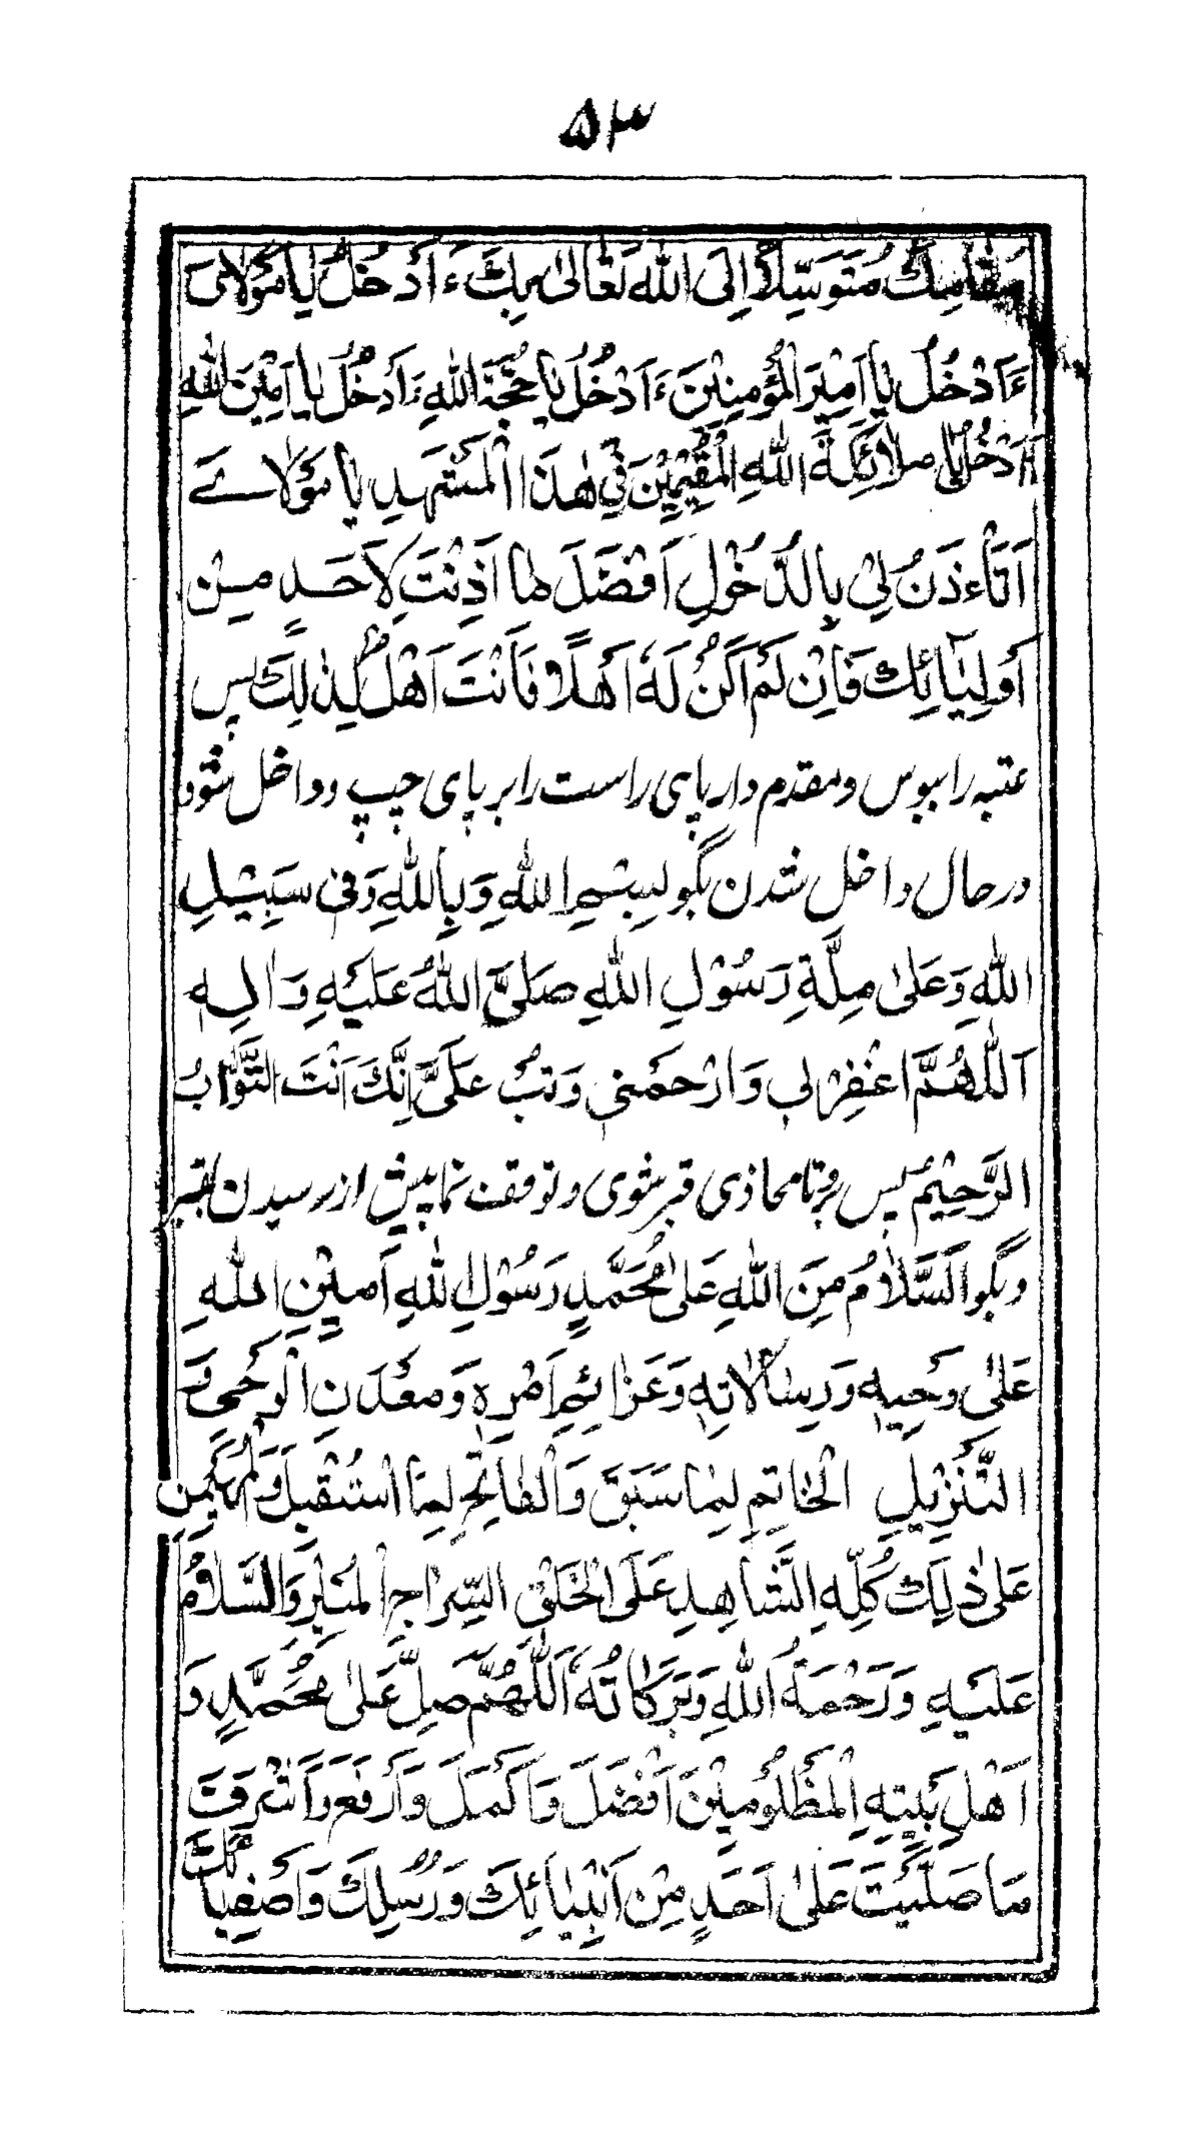 ۵۳
مَقَامِكَ مُتَوَسِّلًا اِلَى اللهِ تَعَالىٰ بِكَ ءَاَدْخُلُ يَا مَوْلَایَ
ءَاَدْخُلُ يَا اَمِيْرَ الْمُؤْمِنِيْنَ ءَاَدْخُلُ يَا حُجَّةَ اللهِ ءَاَدْخُلُ يَا اَمِيْنَ اللهِ
ءَاَدْخُلُ يَا مَلَائِكَةَ اللهِ الْمُقِيْمِيْنَ فِيْ هٰذَا الْمَشْهَدِ يَا مَوْلَاے
اَتَأْذَنُ لِيْ بِالدُّخُوْلِ اَفْضَلَ مَا اَذِنْتَ لِاَحَدٍ مِنْ
اَوْلِيَائِكَ فَاِنْ لَمْ اَكُنْ لَهٗ اَهْلًا فَاَنْتَ اَهْلٌ لِذٰلِكَ پس
عتبه را ببوس و مقدم دار پای راست را بر پای چپ و داخل شو و
در حال داخل شدن بگو بِسْمِ اللهِ وَبِاللهِ وَفِی سَبِيْلِ
اللهِ وَعَلىٰ مِلَّةِ رَسُوْلِ اللهِ صَلَّى اللهُ عَلَيْهِ وَاٰلِهٖ
اَللّٰهُمَّ اغْفِرْ لِی وَارْحَمْنِی وَتُبْ عَلَیَّ اِنَّكَ اَنْتَ التَّوَّابُ
الرَّحِيْمُ پس برو تا محاذی قبر شوی و توقف نما پیش از رسیدن بقبر
و بگو اَلسَّلَامُ مِنَ اللهِ عَلىٰ مُحَمَّدٍ رَسُوْلِ اللهِ اَمِيْنِ اللهِ
عَلىٰ وَحْيِهٖ وَرِسَالَاتِهٖ وَعَزَائِمِ اَمْرِهٖ وَمَعْدَنِ الْوَحْیِ وَ
التَّنْزِيْلِ الْخَاتِمِ لِمَا سَبَقَ وَالْفَاتِحِ لِمَا اسْتُقْبِلَ وَالْمُهَيْمِنِ
عَلىٰ ذٰلِكَ كُلِّهِ الشَّاهِدِ عَلَى الْخَلْقِ السِّرَاجِ الْمُنِيْرِ وَالسَّلَامُ
عَلَيْهِ وَرَحْمَةُ اللهِ وَبَرَكَاتُهٗ اَللّٰهُمَّ صَلِّ عَلىٰ مُحَمَّدٍ وَ
اَهْلِ بَيْتِهِ الْمَظْلُوْمِيْنَ اَفْضَلَ وَاَكْمَلَ وَاَرْفَعَ وَاَشْرَفَ
مَا صَلَّيْتَ عَلىٰ اَحَدٍ مِنْ اَنْبِيَائِكَ وَرُسُلِكَ وَاَصْفِيَائِكَ